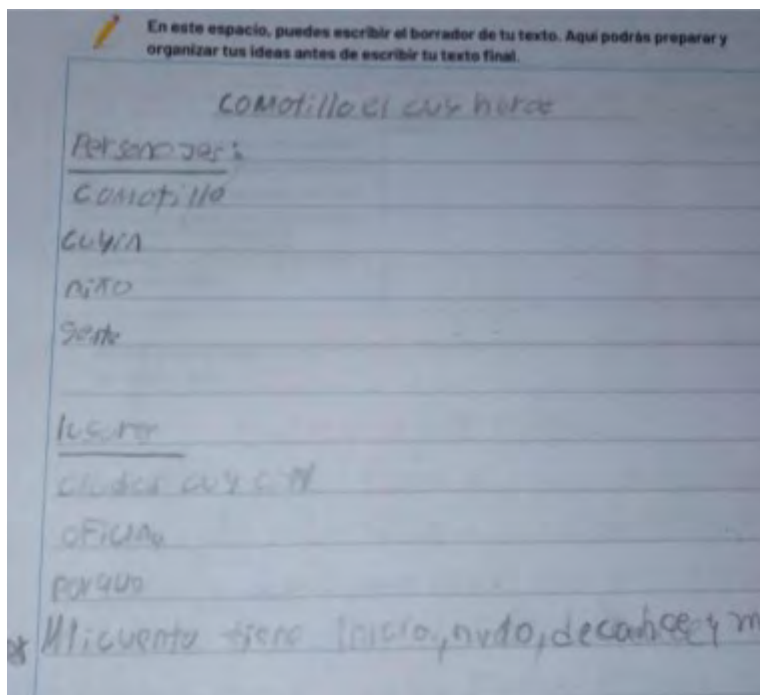 En este espacio, puedes escribir el borrador de tu texto. Aquí podrás preparar y
organizar tus ideas antes de escribir tu texto final.
comotillo el cuy heroe
Personajes:
comotillo
cuyin
niño
gente
lugares
ciudad cuy
oficina
parque
Mi cuento tiene inicio, nudo, decance y m